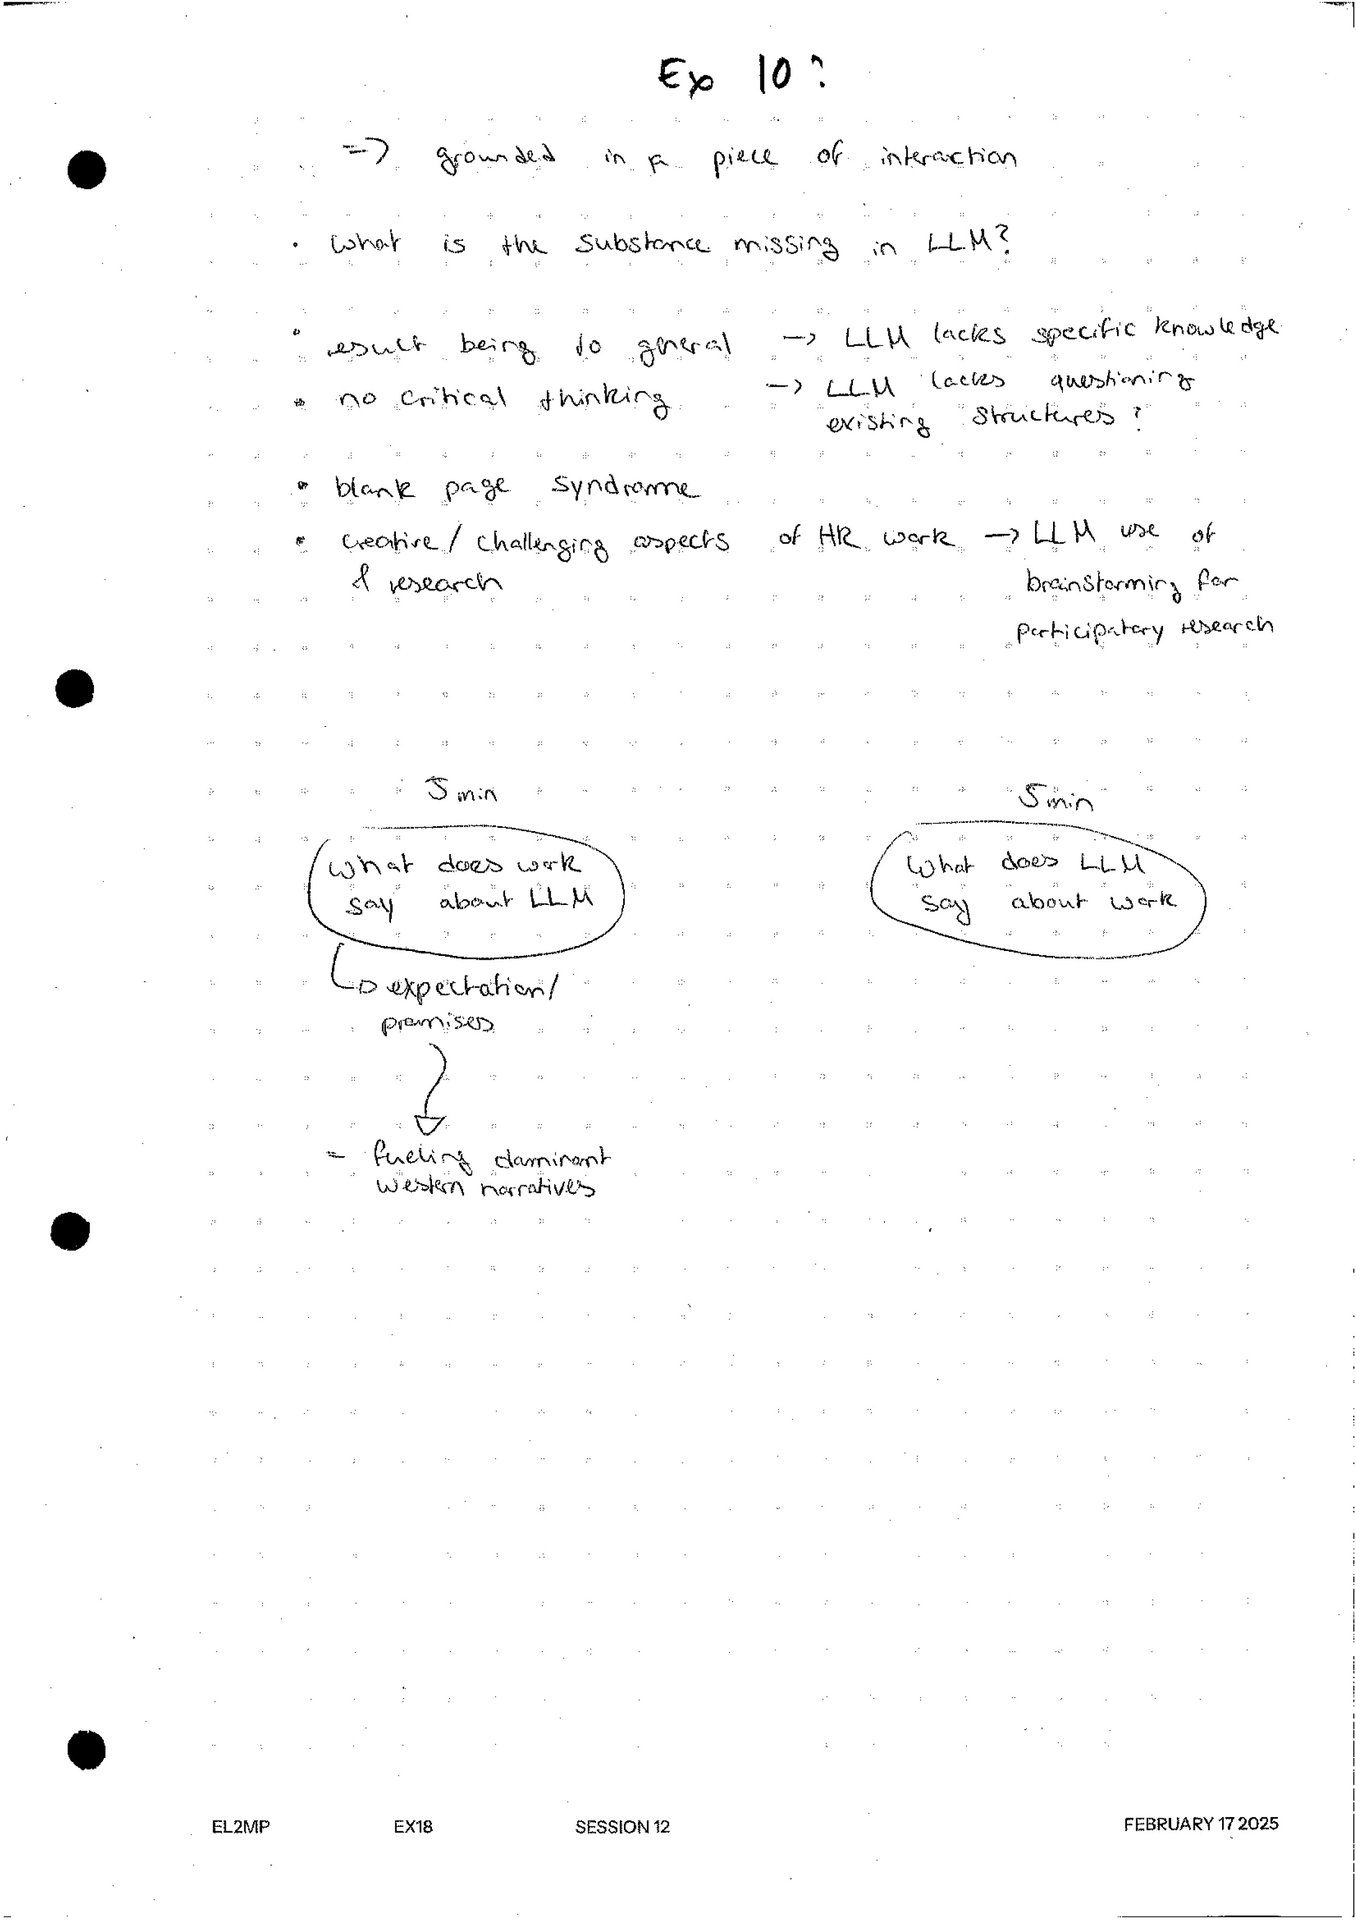 Ex 10?
=> grounded in a piece of interaction
• What is the substance missing in LLM?
• result being to general → LLM lacks specific knowledge
• no critical thinking → LLM lacks questioning
existing structures?
• blank page syndrome
• creative / challenging aspects of HR work → LLM use of
& research
brainstorming for
participatory research
5 min
What does work
say about LLM
↳ expectation/
promises
= fueling dominant
western narratives
5 min
What does LLM
say about work
EL2MP EX18 SESSION 12 FEBRUARY 17 2025